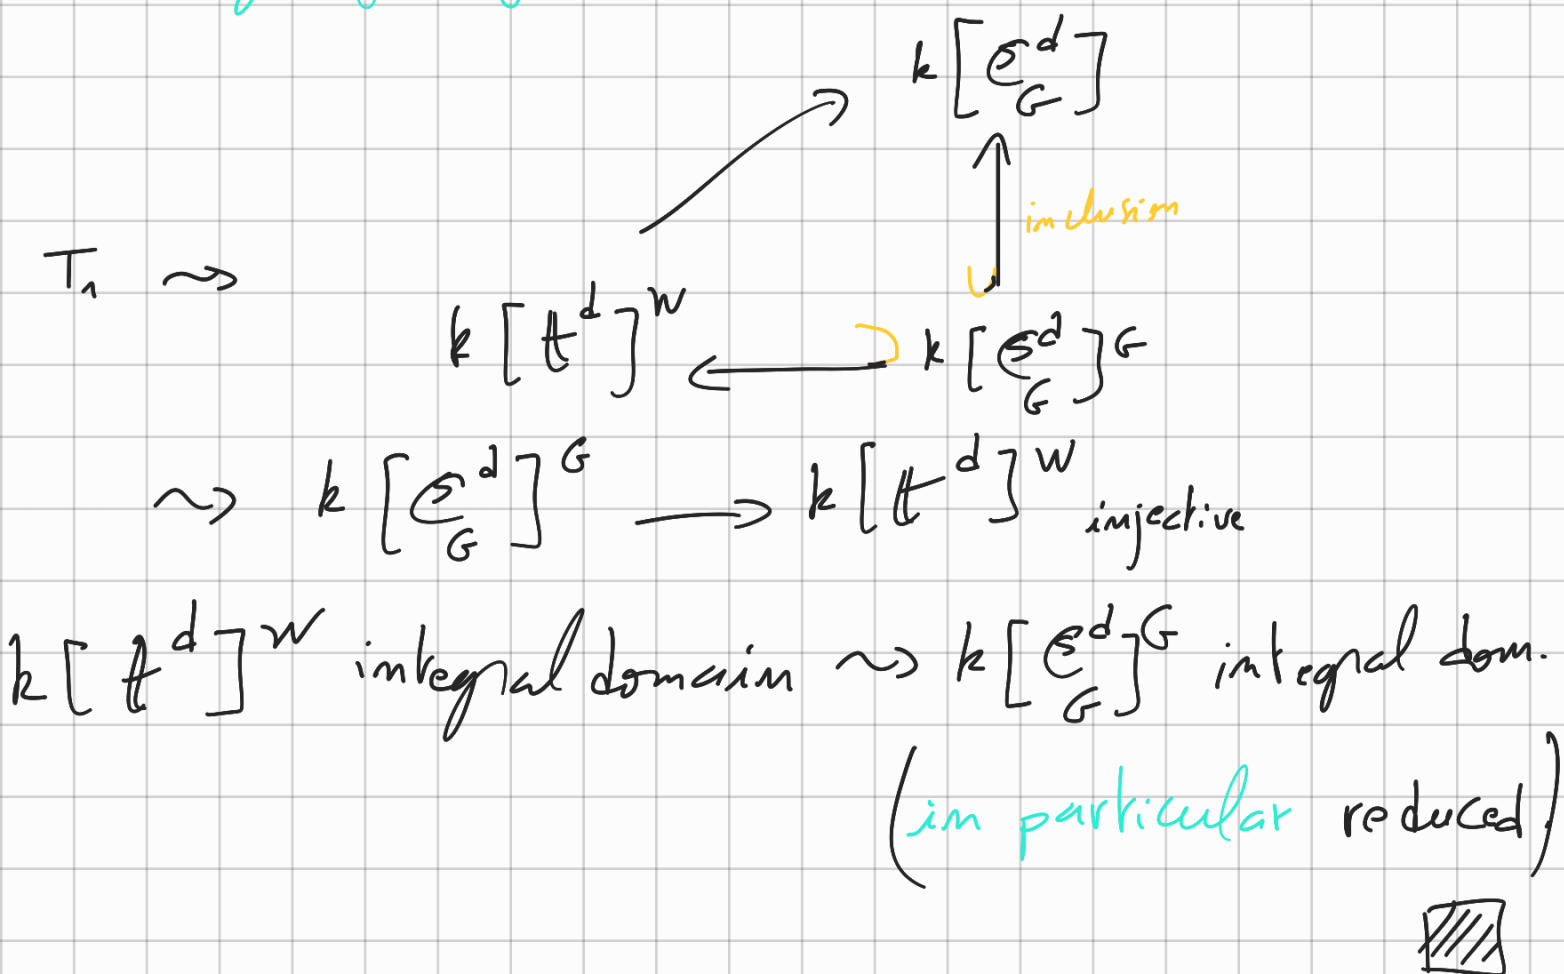 k[𝔈^d_G]
inclusion
T_1 ⇝
k[𝔱^d]^W ← k[𝔈^d_G]^G
⇝ k[𝔈^d_G]^G → k[𝔱^d]^W injective
k[𝔱^d]^W integral domain ⇝ k[𝔈^d_G]^G integral dom.
(in particular reduced)